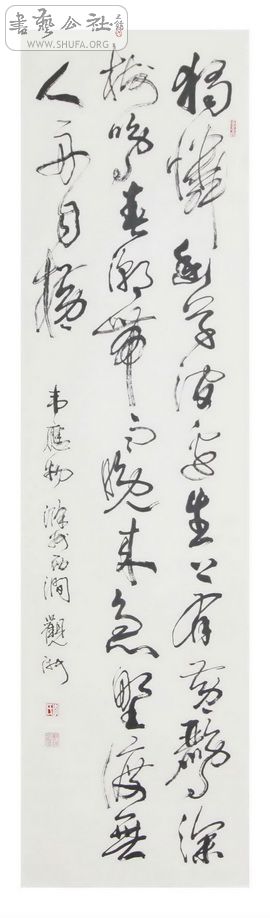 書藝公社
WWW.SHUFA.ORG
獨憐幽草澗邊生上有黃鸝深
樹鳴春潮帶雨晚來急野渡無
人舟自橫
韋應物滁州西澗觀海